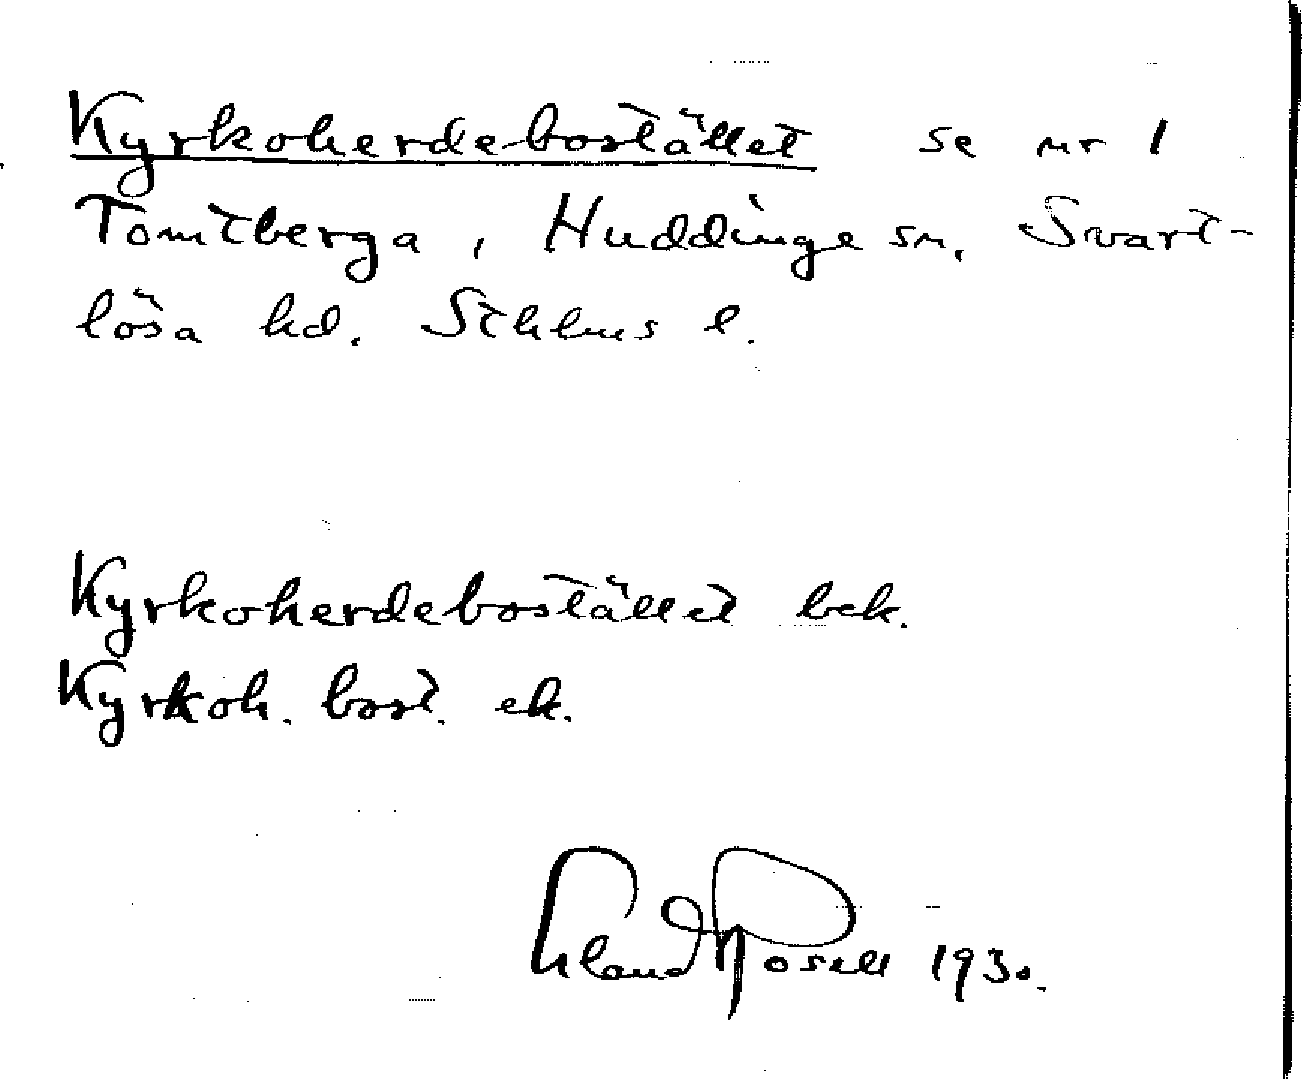 Kyrkoherdebostället se nr 1
Tomtberga, Huddinge sn, Svart-
lösa hd. Sthlms l.
Kyrkoherdebostället bek.
Kyrkoh. bost. ek.
Rosell 1930.